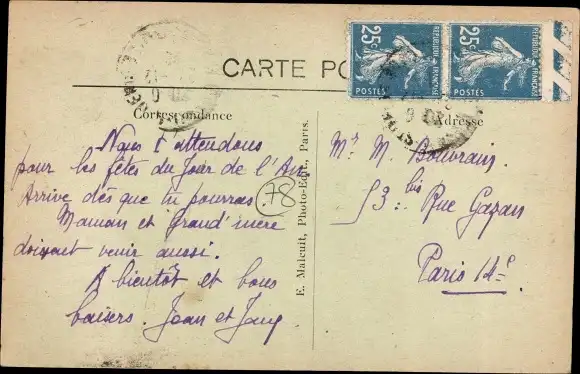 CARTE PO
25c
POSTES
REPUBLIQUE FRANÇAISE
25c
POSTES
REPUBLIQUE FRANÇAISE
Correspondance
Adresse
Nous t'attendons
pour les fêtes du Jour de l'An.
Arrive dès que tu pourras.
78
Maman et Grand'mère
doivent venir aussi.
A bientôt et bons
baisers. Jean et
E. Malcuit, Photo-Edit., Paris.
Mr M. Bouvrain
53 bis Rue Gazan
Paris 14e